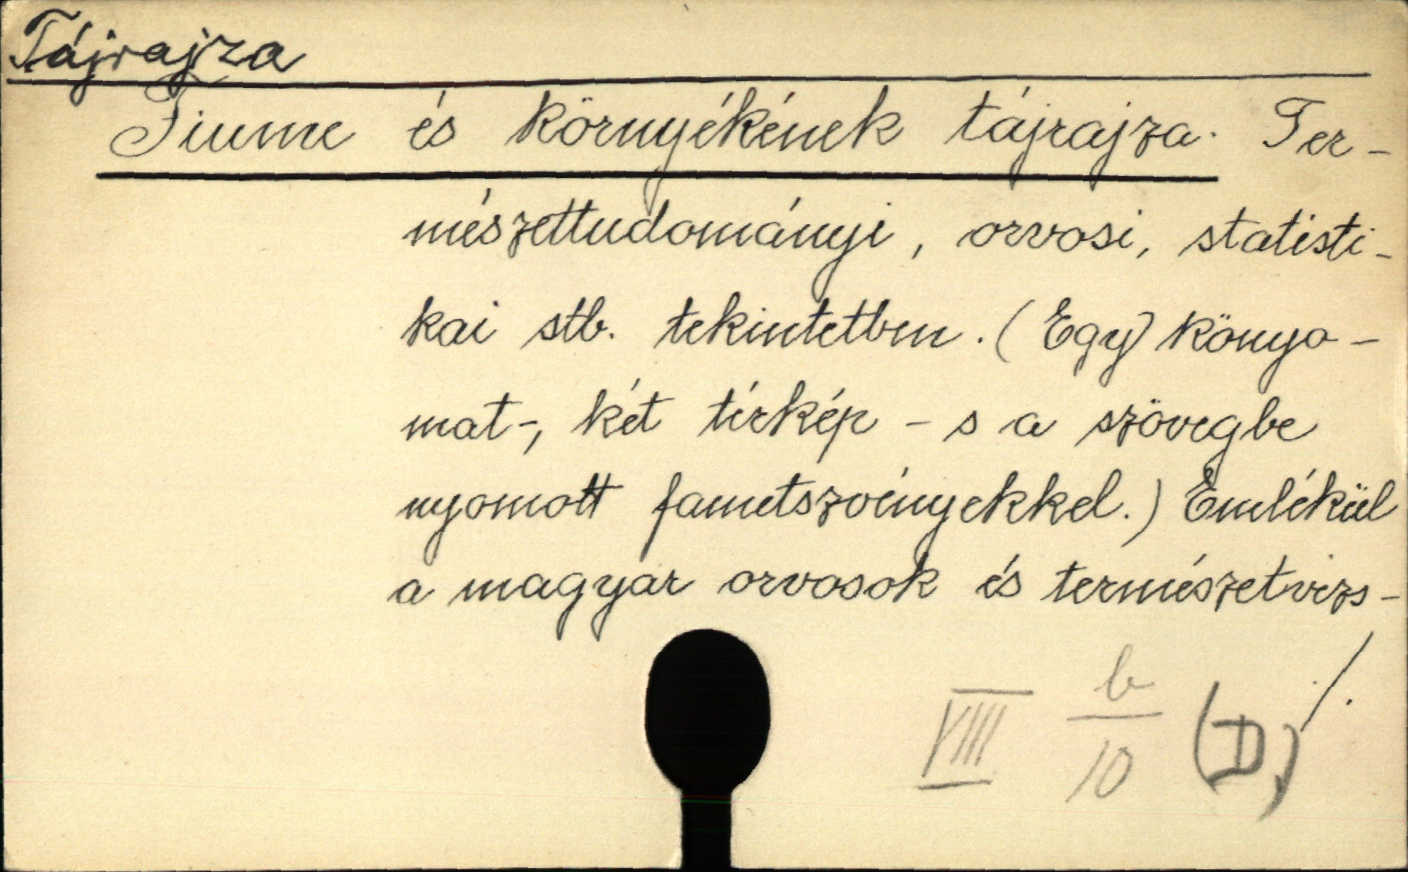 Tájrajza
Fiume és környékének tájrajza. Ter-
mészettudományi, orvosi, statisti-
kai stb. tekintetben. (Egy könyo-
mat-, két térkép - s a szövegbe
nyomott fametszvényekkel.) Emlékül
a magyar orvosok és természetvizs-
./.
VIII b/10 (D)